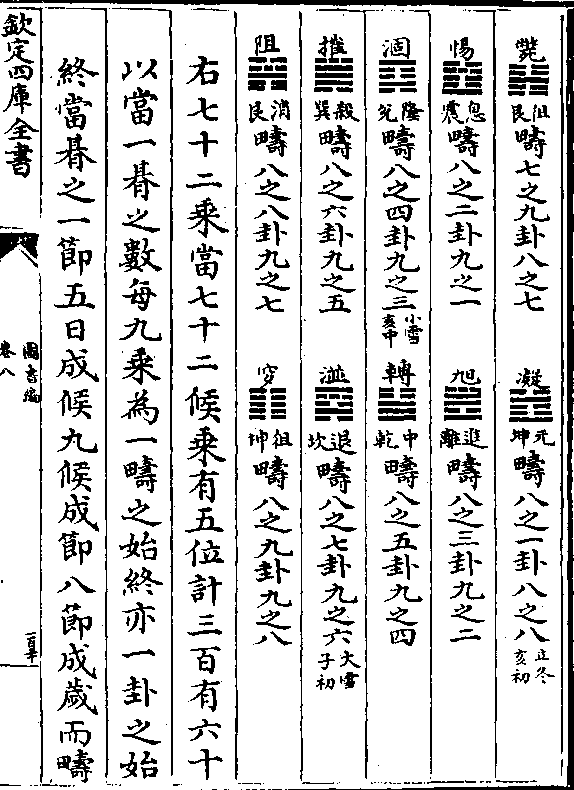 斃 徂艮 疇七之九卦八之七 凝 元坤 疇八之一卦八之八 立冬亥初
惕 息震 疇八之二卦九之一 旭 進離 疇八之三卦九之二
涸 隆兌 疇八之四卦九之三 小雪亥中 轉 中乾 疇八之五卦九之四
摧 殺巽 疇八之六卦九之五 溢 退坎 疇八之七卦九之六 大雪子初
阻 消艮 疇八之八卦九之七 穸 徂坤 疇八之九卦九之八
右七十二乘當七十二候乘有五位計三百有六十
以當一朞之數每九乘為一疇之始終亦一卦之始
終當朞之一節五日成候九候成節八節成歲而疇
欽定四庫全書
圖書編
卷八